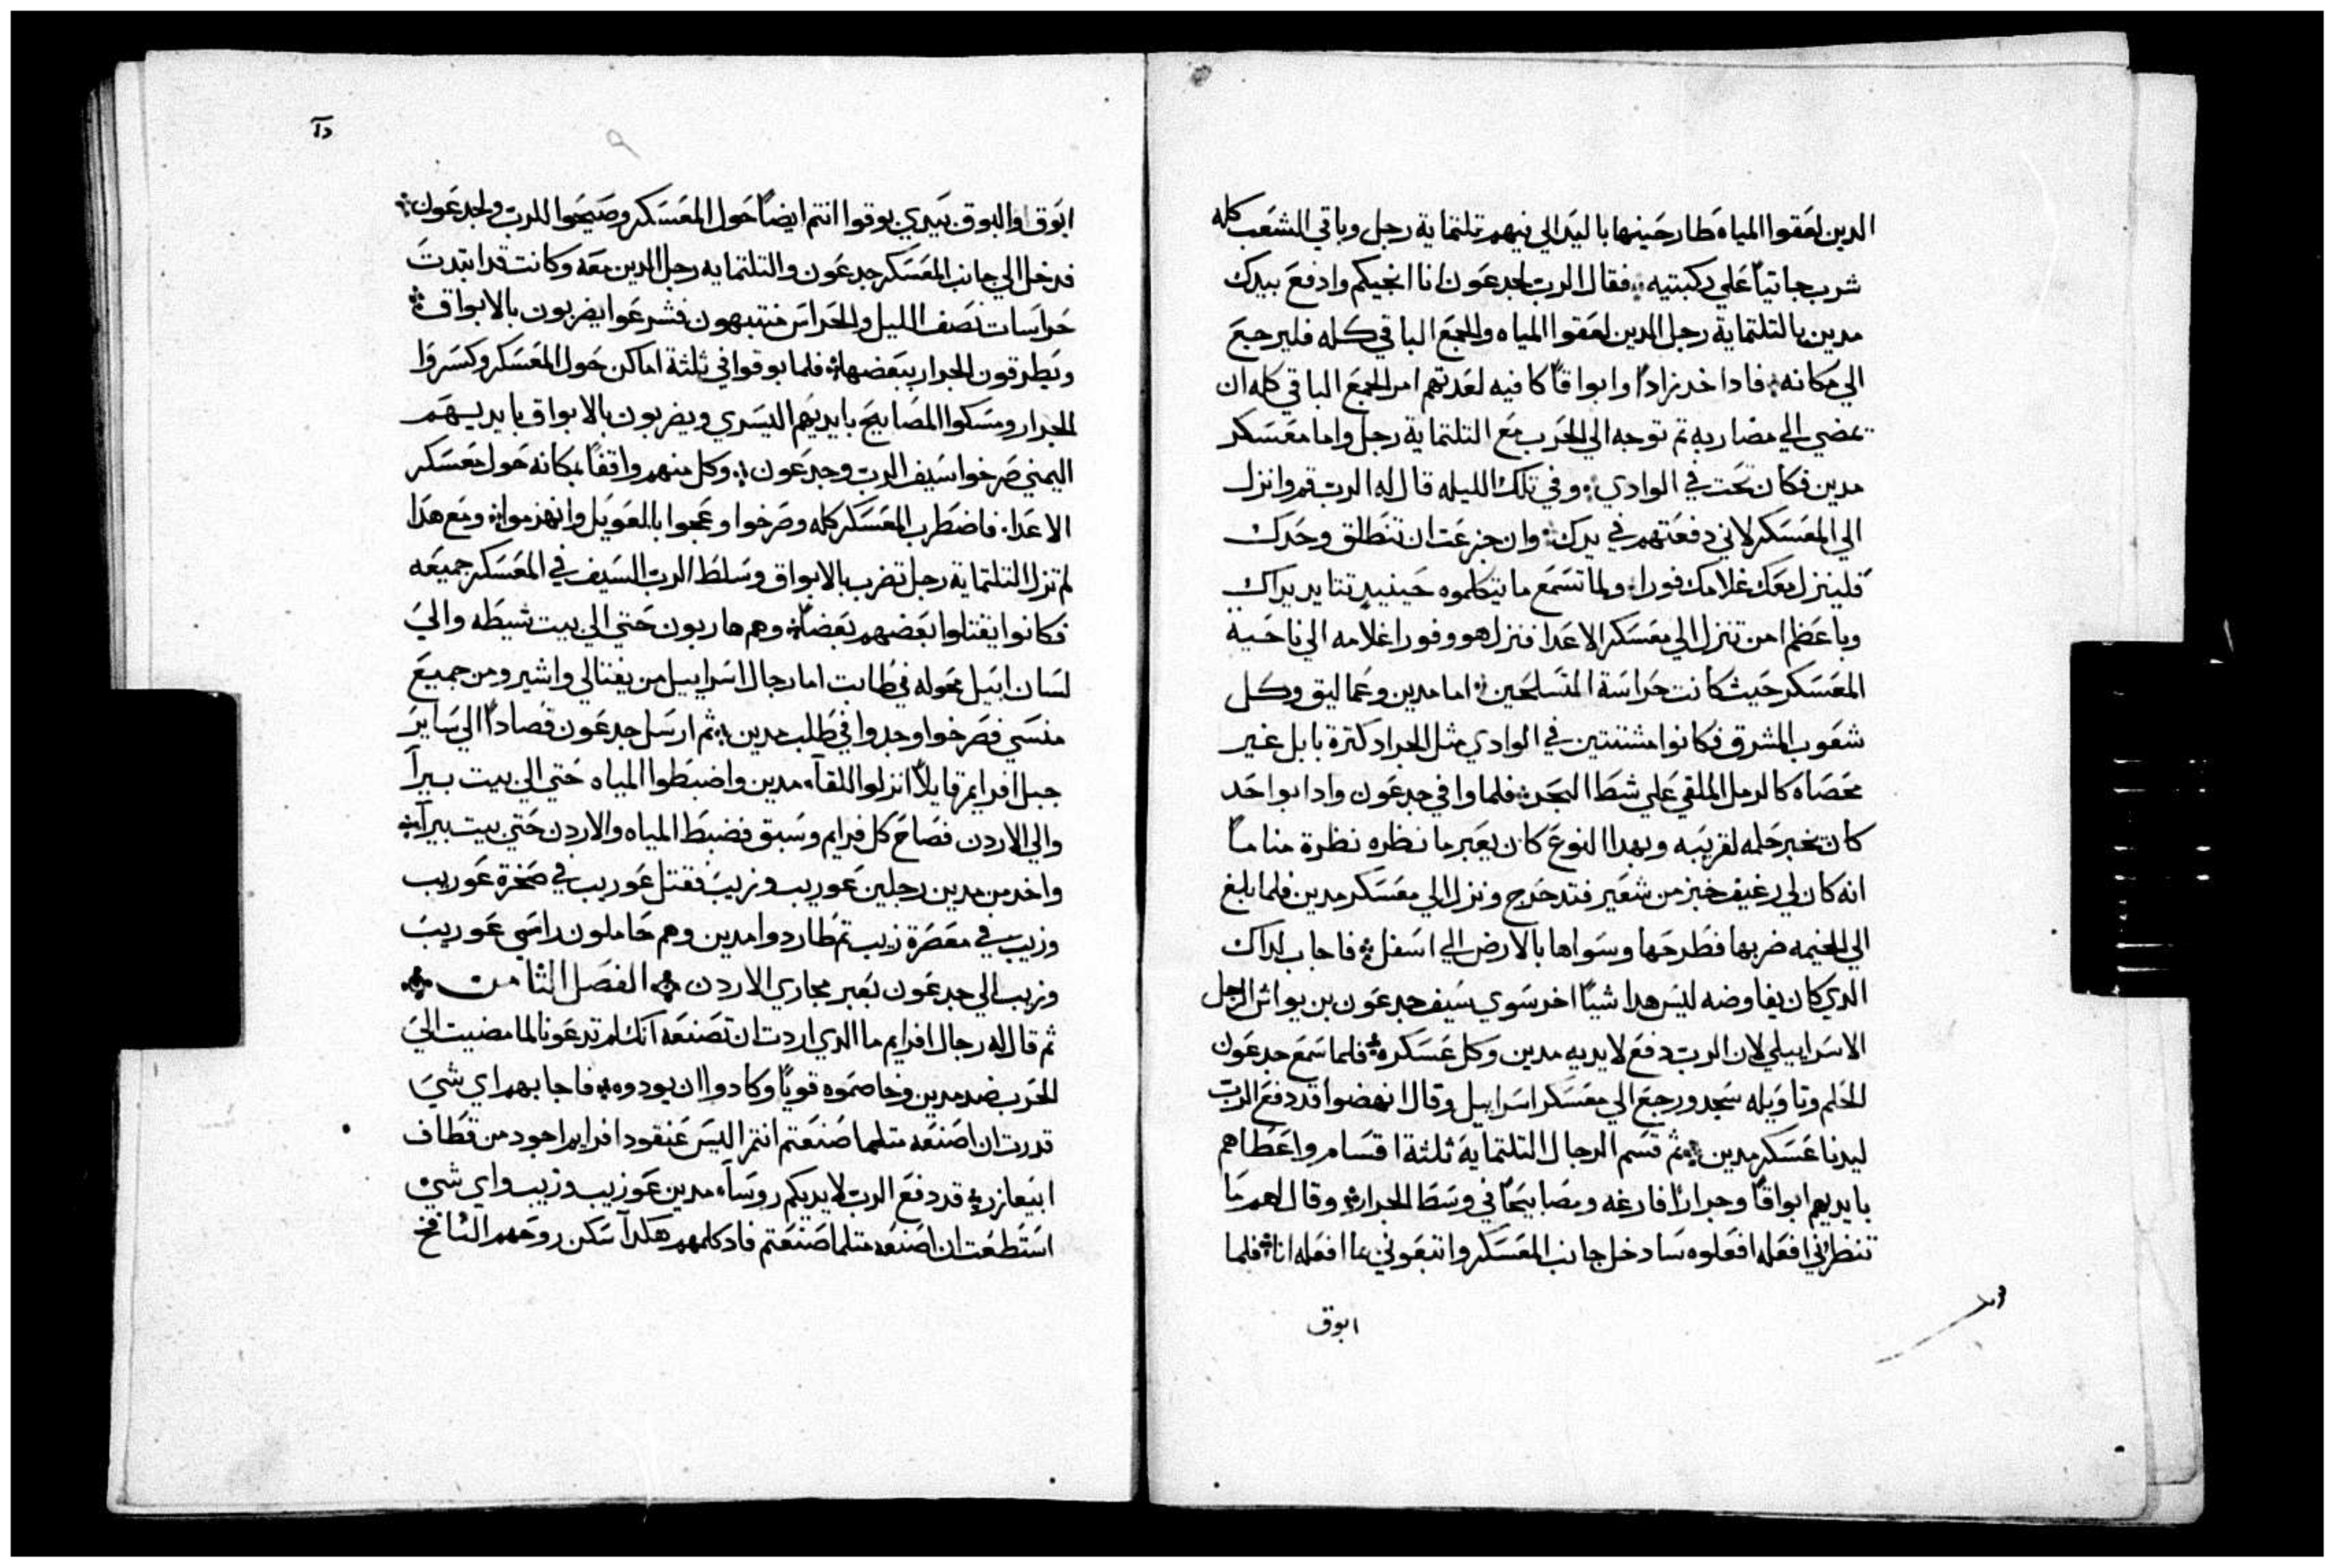 الدين لعقوا المياه طارحينها باليد الي فيهم تلتماية رجل وباقي الشعب كله
شرب جاتياً علي ركبتيه فقال الرب لجدعون انا انجيكم وادفع بيدك
مدين بالتلتماية رجل الدين لعقوا المياه والجمع الباقي كله فليرجع
الي مكانه فاد اخد زاداً وابواقاً كافيه لعدتهم امر الجمع الباقي كله ان
تمضي الي مضاربه تم توجه الي الحرب مع التلتماية رجل واما معسكر
مدين فكان تحت في الوادي وفي تلك الليله قال له الرب قم وانزل
الي المعسكر لاني دفعتهم في يدك وان جزعت ان تنطلق وحدك
فلينزل معك غلامك فورا ولما تسمع ما يتكلموه حينيدٍ تتايد يداك
وباعظم امن تنزل الي معسكر الاعدا فنزل هو وفورا غلامه الي ناحية
المعسكر حيث كانت حراسة المتسلحين اما مدين وعماليق وكل
شعوب المشرق فكانوا مشتتين في الوادي مثل الجراد كترة بابل غير
محصاه كالرمل الملقي علي شط البحر فلما وافي جدعون وادا بواحد
كان يخبر حلمه لقريبه وبهدا النوع كان يعبر ما نظره نظرة مناماً
انه كان لي رغيف خبز من شعير فتدحرج ونزل الي معسكر مدين فلما بلغ
الي الخيمه ضربها فطرحها وسواها بالارض الي اسفل فاجاب لداك
الدي كان يفاوضه ليس هدا شياً اخر سوي سيف جدعون بن يواش الرجل
الاسراييلي لان الرب دفع لايديه مدين وكل عسكره فلما سمع جدعون
الحلم وتاويله سجد ورجع الي معسكر اسراييل وقال انهضوا قد دفع الرب
ليدنا عسكر مدين ثم قسم الرجال التلتماية ثلثة اقسام واعطاهم
بايديهم ابواقاً وجراراً فارغه ومصابيحاً في وسط الجرار وقال لهم ما
تنظرني افعله افعلوه سادخل جانب المعسكر واتبعوني بما افعله انا فلما
ابوق
ابوق والبوق بيدي بوقوا انتم ايضاً حول المعسكر وصيحوا للرب ولجدعون
فدخل الي جانب المعسكر جدعون والتلتمايه رجل الدين معه وكانت قد ابتدت
حراسات نصف الليل والحراس منتبهون فشرعوا يضربون بالابواق
ويطرقون الجرار ببعضها فلما بوقوا في ثلثة اماكن حول المعسكر وكسروا
الجرار ومسكوا المصابيح بايديهم اليسري ويضربون بالابواق بايديهم
اليمني صرخوا سيف الرب وجدعون وكل منهم واقفاً بمكانه حول معسكر
الاعدا فاضطرب المعسكر كله وصرخوا وعجوا بالعويل وانهزموا ومع هدا
لم تزل التلتماية رجل تضرب بالابواق وسلط الرب السيف في المعسكر جميعه
فكانوا يقتلوا بعضهم بعضاً وهم هاربون حتي الي بيت شيطه والي
لسان ابيل محوله في طابت اما رجال اسراييل من يفتالي واشير ومن جميع
منسي فصرخوا وجدوا في طلب مدين ثم ارسل جدعون قصاداً الي ساير
جبل افرايم قايلاً انزلوا للقآ مدين واضبطوا المياه حتي الي بيت بيرآ
والي الاردن فصاح كل فرايم وسبق فضبط المياه والاردن حتي بيت بيرآ
واخد من مدين رجلين عوريب وزيب فقتل عوريب في صخرة عوريب
وزيب في معصرة زيب تم طاردوا مدين وهم حاملون راسي عوريب
وزيب الي جدعون بعبر مجاري الاردن الفصل الثامن
ثم قال له رجال افرايم ما الدي اردت ان تصنعه آنك لم تدعونا لما مضيت الي
الحرب ضد مدين وخاصموه قوياً وكادوا ان يودوه فاجابهم اي شي
قدرت ان اصنعه متلما صنعتم انتم اليس عنقود افرايم اجود من قطاف
ابيعازر قد دفع الرب لايديكم روسآ مدين عوزيب وزيب واي شي
استطعت ان اصنعه متلما صنعتم فاد كلمهم هكدآ سكن روحهم النافخ